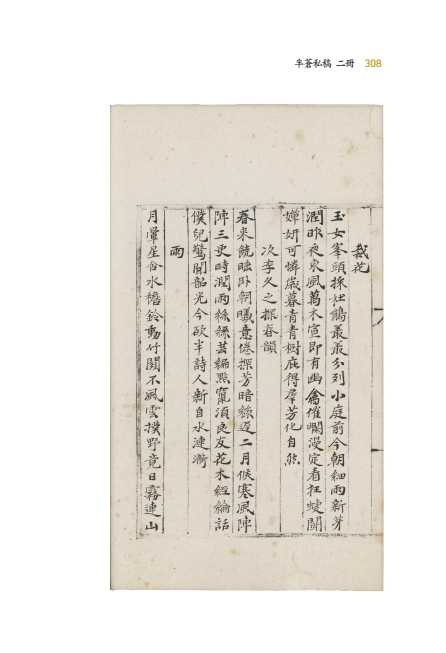 半蒼私稿 二冊 308
栽花
玉女峯頭採杜鵑叢叢分列小庭前今朝細雨新芽
潤昨夜東風萬木宣即有幽禽催爛漫定看狂蝶鬪
嬋妍可憐歲暮青青樹庇得羣芳化自然
次李久之探春韻
春來統 卧朝曦意倦探芳暗 遲二月候寒風陣
陣三更時潤雨絲絲芸編點 須良友花木經綸話
僕兒驚聞韶光今欲半詩人新自水連漪
雨
月暈星昏水 鈴動竹關不 風雲撲野竟日霧連山